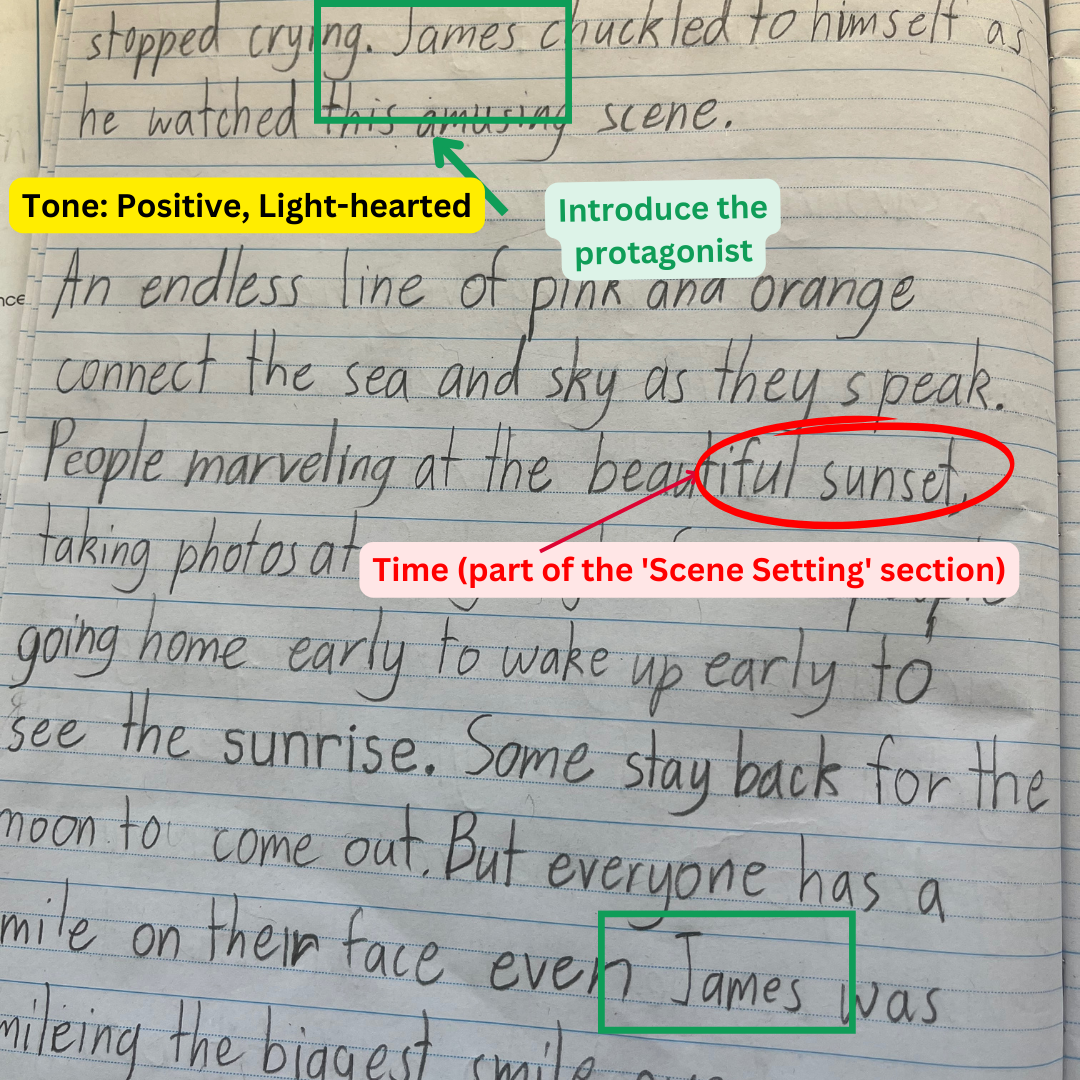 stopped crying. James chuckled to himself as
he watched this amusing scene.
Tone: Positive, Light-hearted
Introduce the
protagonist
An endless line of pink and orange
nce
connect the sea and sky as they speak.
People marveling at the beautiful sunset,
taking photos at
Time (part of the 'Scene Setting' section)
going home early to wake up early to
see the sunrise. Some stay back for the
moon to come out. But everyone has a
mile on their face even James was
mileing the biggest smile